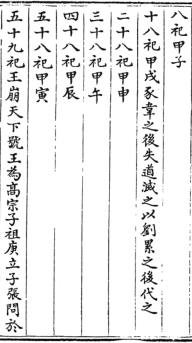 八祀甲子
十八祀甲戌豕韋之後失道滅之以劉累之後代之
二十八祀甲申
三十八祀甲午
四十八祀甲辰
五十八祀甲寅
五十九祀王崩天下號王為高宗子祖庚立子張問於